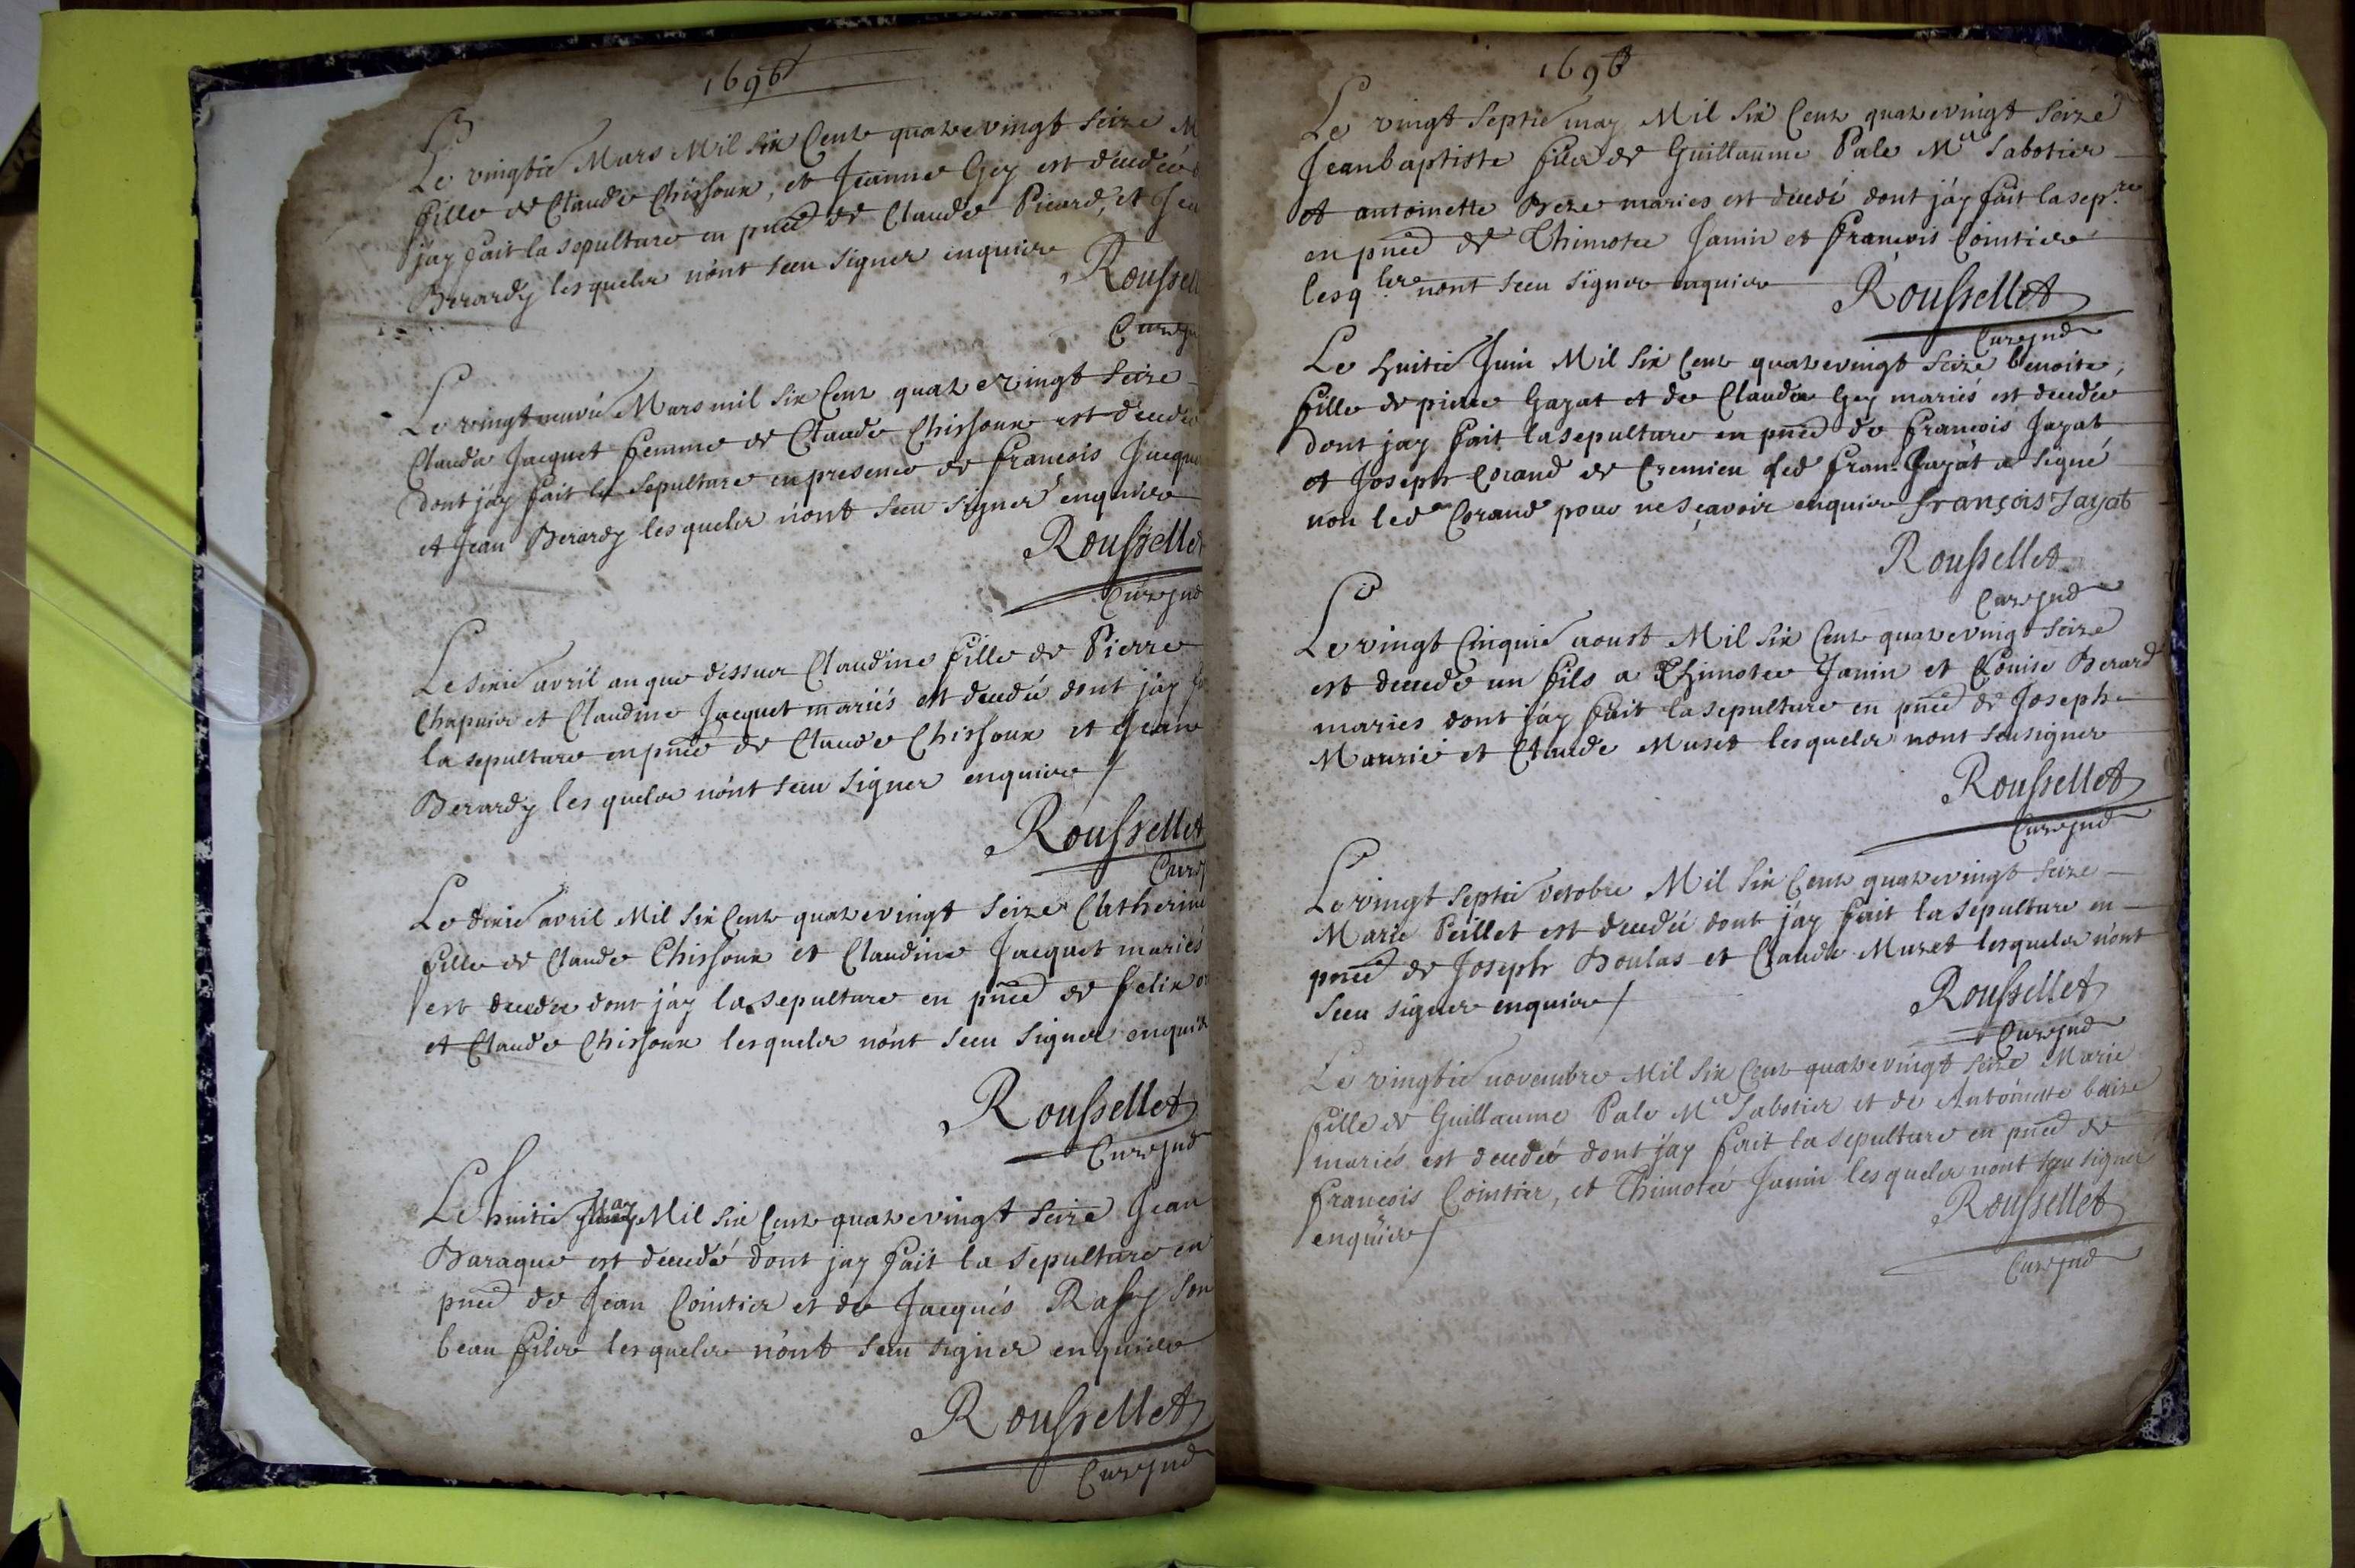 1696
Le vingtie Mars Mil Six Cent quatrevingt Seize M
fille de Claude Chissoux, et Jeanne Gey est decedée
jay fait la sepulture en pnce de Claude Picard, et Jea
Berardy lesquels n'ont sceu signer enquire
Roussell
Curé
Le vingt neuvie Mars mil Six Cent quatrevingt Seize
Claudie Jacquet femme de Claude Chissoux est decedée
dont j'ay fait la sepulture en presence de francois Jacque
et Jean Berardy lesquels n'ont sceu signer enquire
Roussellet
Curé jnd
Le sixie avril an que dessus Claudine fille de Pierre
Chapuir et Claudine Jacquet mariés est decedé dont j'ay
la sepulture en pnce de Claude Chissoux et Jean
Berardy lesquels n'ont sceu signer enquire /
Roussellet
Curé
Le dixie avril Mil Six Cent quatrevingt Seize Catherine
fille de Claude Chissoux et Claudine Jacquet mariés
est decedée dont j'ay la sepulture en pnce de felix
et Claude Chissoux lesquels n'ont sceu signer enquire
Roussellet
Curé jnd
Le huitie May Mil Six Cent quatrevingt Seize Jean
Baraque est decedé dont jay fait la sepulture en
pnce de Jean Cointier et de Jacques Rassy son
beau fils lesquels n'ont sceu signer enquire
Roussellet
Curé jnd
1696
Le vingt septie may Mil Six Cent quatrevingt Seize
Jeanbaptiste fils de Guillaume Pale Me Sabotier
et antoinette Beze maries est decedé dont j'ay fait la sep.re
en pnce de Thimotee Janin et francois Cointier
lesq.ls n'ont sceu signer enquire
Roussellet
Curé jnd
Le huitie Juin Mil Six Cent quatrevingt Seize benoite,
fille de pierre Gayat et de Claudie Gey mariés est decedée
dont jay fait la sepulture en pnce de francois Jayat
et Joseph Corand de Cremieu led fran. Jayat a signé
non led Corand pour ne sçavoir enquire françois Jayat
Roussellet
Curé jnd
Le vingt Cinquie aoust Mil Six Cent quatrevingt Seize
est decedé un fils a Thimotee Janin et Louise Berard
maries dont j'ay fait la sepulture en pnce de Joseph
Maurie et Claude Muset lesquels n'ont sceu signer
Roussellet
Curé jnd
Le vingt septie octobre Mil Six Cent quatrevingt Seize
Marie Peillet est decedé dont j'ay fait la sepulture en
pnce de Joseph Boulas et Claude Muset lesquels n'ont
sceu signer enquire /
Roussellet
Curé jnd
Le vingtie novembre Mil Six Cent quatrevingt Seize Marie
fille de Guillaume Pale Me Sabotier et de Antoinette baise
mariés est decedée dont j'ay fait la sepulture en pnce de
francois Cointier, et Thimoteé Janin lesquels n'ont sceu signer
enquire /
Roussellet
Curé jnd